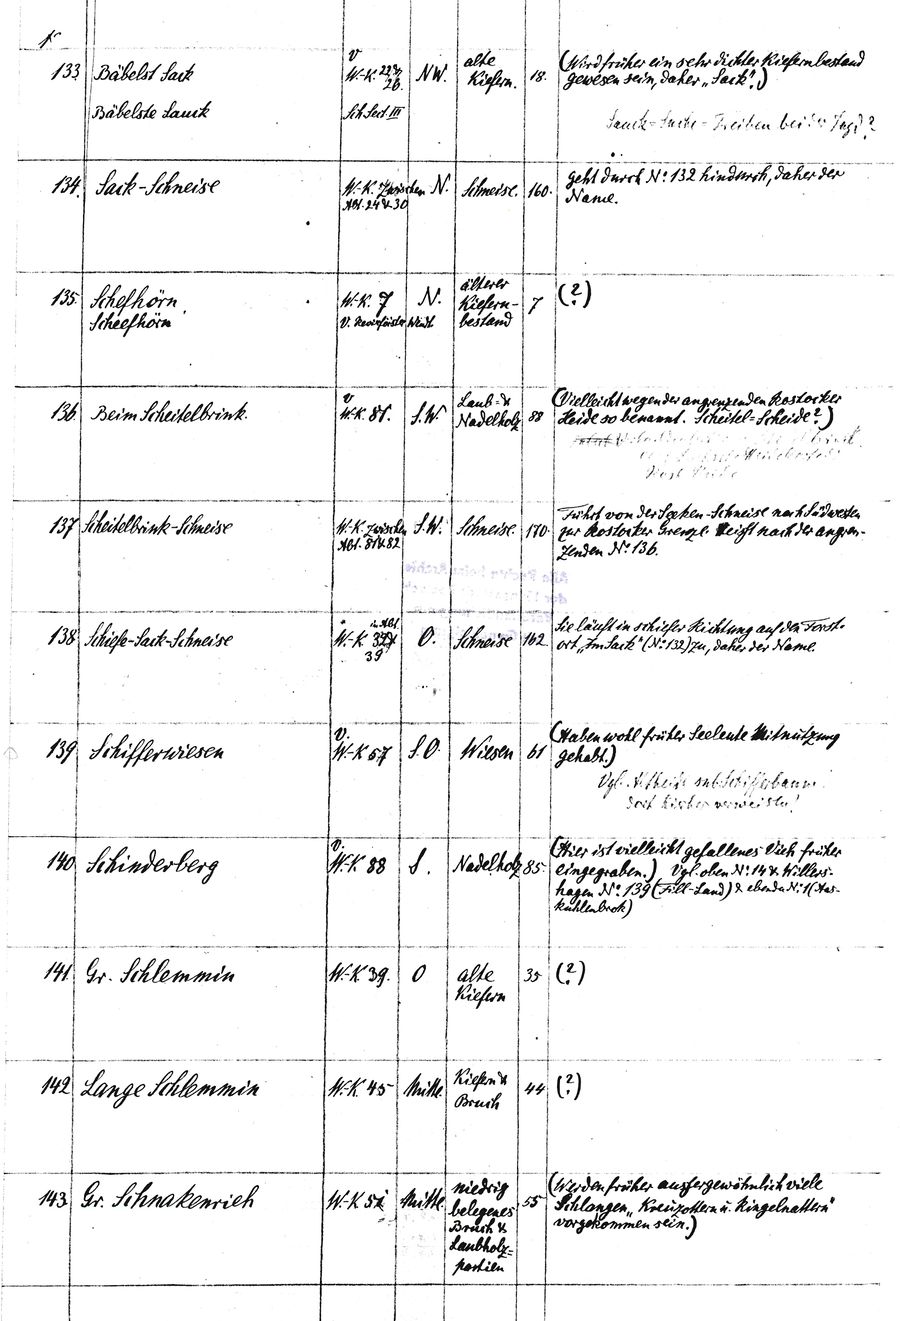 133 Bäbelst Sack
Bäbelste Sauck
v
W.-K.
26.
Sch Sect III
NW.
alte
Kiefern.
18.
(Wird früher ein sehr dichter Kiefernbestand
gewesen sein, daher „Sack“.)
Jagd?
134. Sack-Schneise
W.-K. Zwischen
Abt. 24 & 30
N.
Schneise.
160.
geht durch No. 132 hindurch, daher der
Name.
135 Schefhörn
Scheefhörn
W.-K. 7
v. Revierförster
N.
älterer
Kiefern-
bestand
7
(?)
136 Beim Scheitelbrink
v
W.-K. 81.
S.W
Laub- &
Nadelholz
88
(Vielleicht wegen der angrenzenden Rostocker
Heide so benannt. Scheitel-Scheide?)
137 Scheitelbrink-Schneise
W.-K. Zwischen
Abt. 81 & 82
S.W.
Schneise.
170.
Führt von der Schneise nach Südwesten
zur Rostocker Grenze. nach der angren-
zenden No. 136.
138 Schiefe-Sack-Schneise
in Abt
W.-K.
39
O.
Schneise
162
Sie läuft in schiefer Richtung auf den Forst-
ort „Im Sack“ (No. 132) zu, daher der Name.
139 Schifferwiesen
v.
W.-K 57
S.O
Wiesen
61
(Haben wohl früher Seeleute Mitnutzung
gehabt.)
Vgl. sub Schifferbaum
dort hierher verweisen!
140. Schinderberg
v.
W.-K 88
S.
Nadelholz
85.
(Hier ist vielleicht gefallenes Vieh früher
eingegraben.) Vgl. oben No. 14 & Willers-
hagen No. 139 (Fill-Land) & ebenda No. 1 (Aas-
kuhlenbrok)
141 Gr. Schlemmin
W.-K. 39.
O
alte
Kiefern
35
(?)
142 Lange Schlemmin
W.-K. 45
Mitte.
Kiefern &
Bruch
44
(?)
143. Gr. Schnakenrieh
W.-K
Mitte.
niedrig
belegenes
Bruch &
Laubholz-
partien
55
(Werden früher aussergewöhnlich viele
Schlangen „Kreuzottern u. Ringelnattern“
vorgekommen sein.)